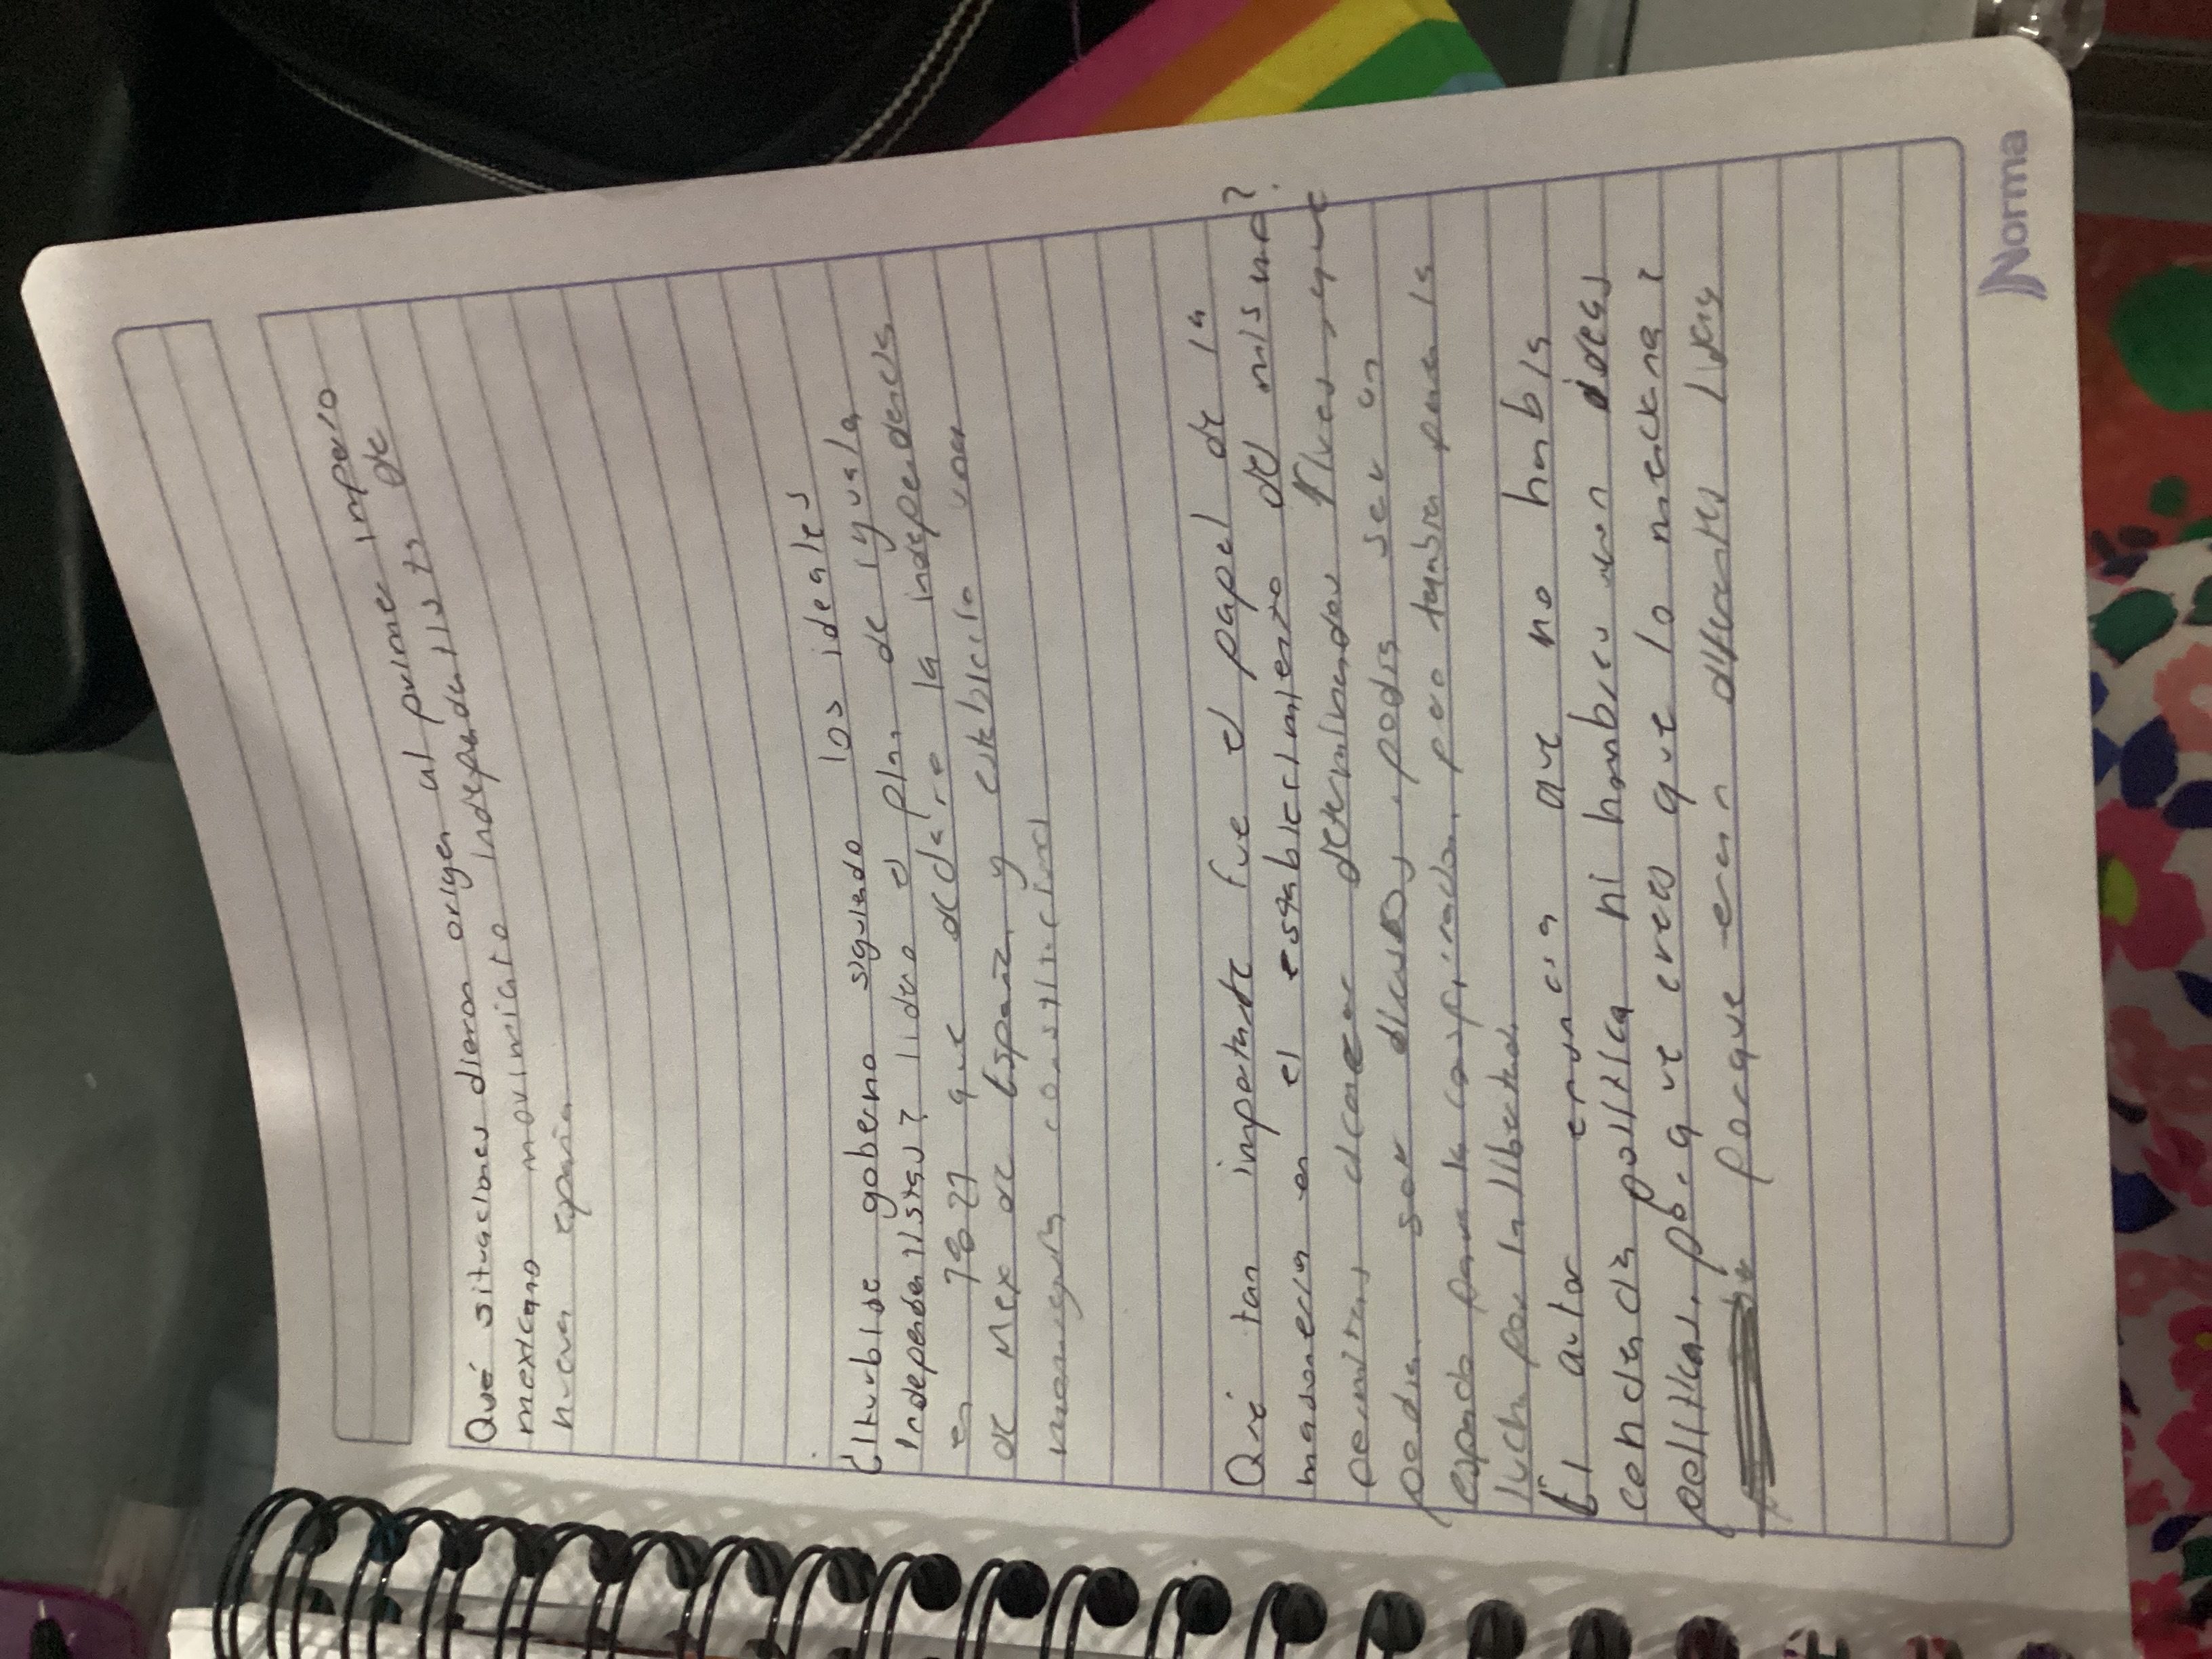 Qué situaciones dieron origen al primer imperio
mexicano movimiento independentista de
nueva españa
¿Iturbide goberno siguiendo los ideales
Independentistas? lidero el plan de iguala
en 1821 que declaro la independencia
de Mex de España y establecio una
monarquia constitucional
Qué tan importante fue el papel de la
masoneria en el establecimiento del mismo?
permitian alcanzar determinados fines, que
podian ser discusos, podia ser un
espacio para la conspiración, pero tambien para la
lucha por la libertad.
El autor enuncia que no habia
cendencia politica ni hombres con ideas
politicas, por que crees que lo menciona?
porque eran diferentes ideas
Norma